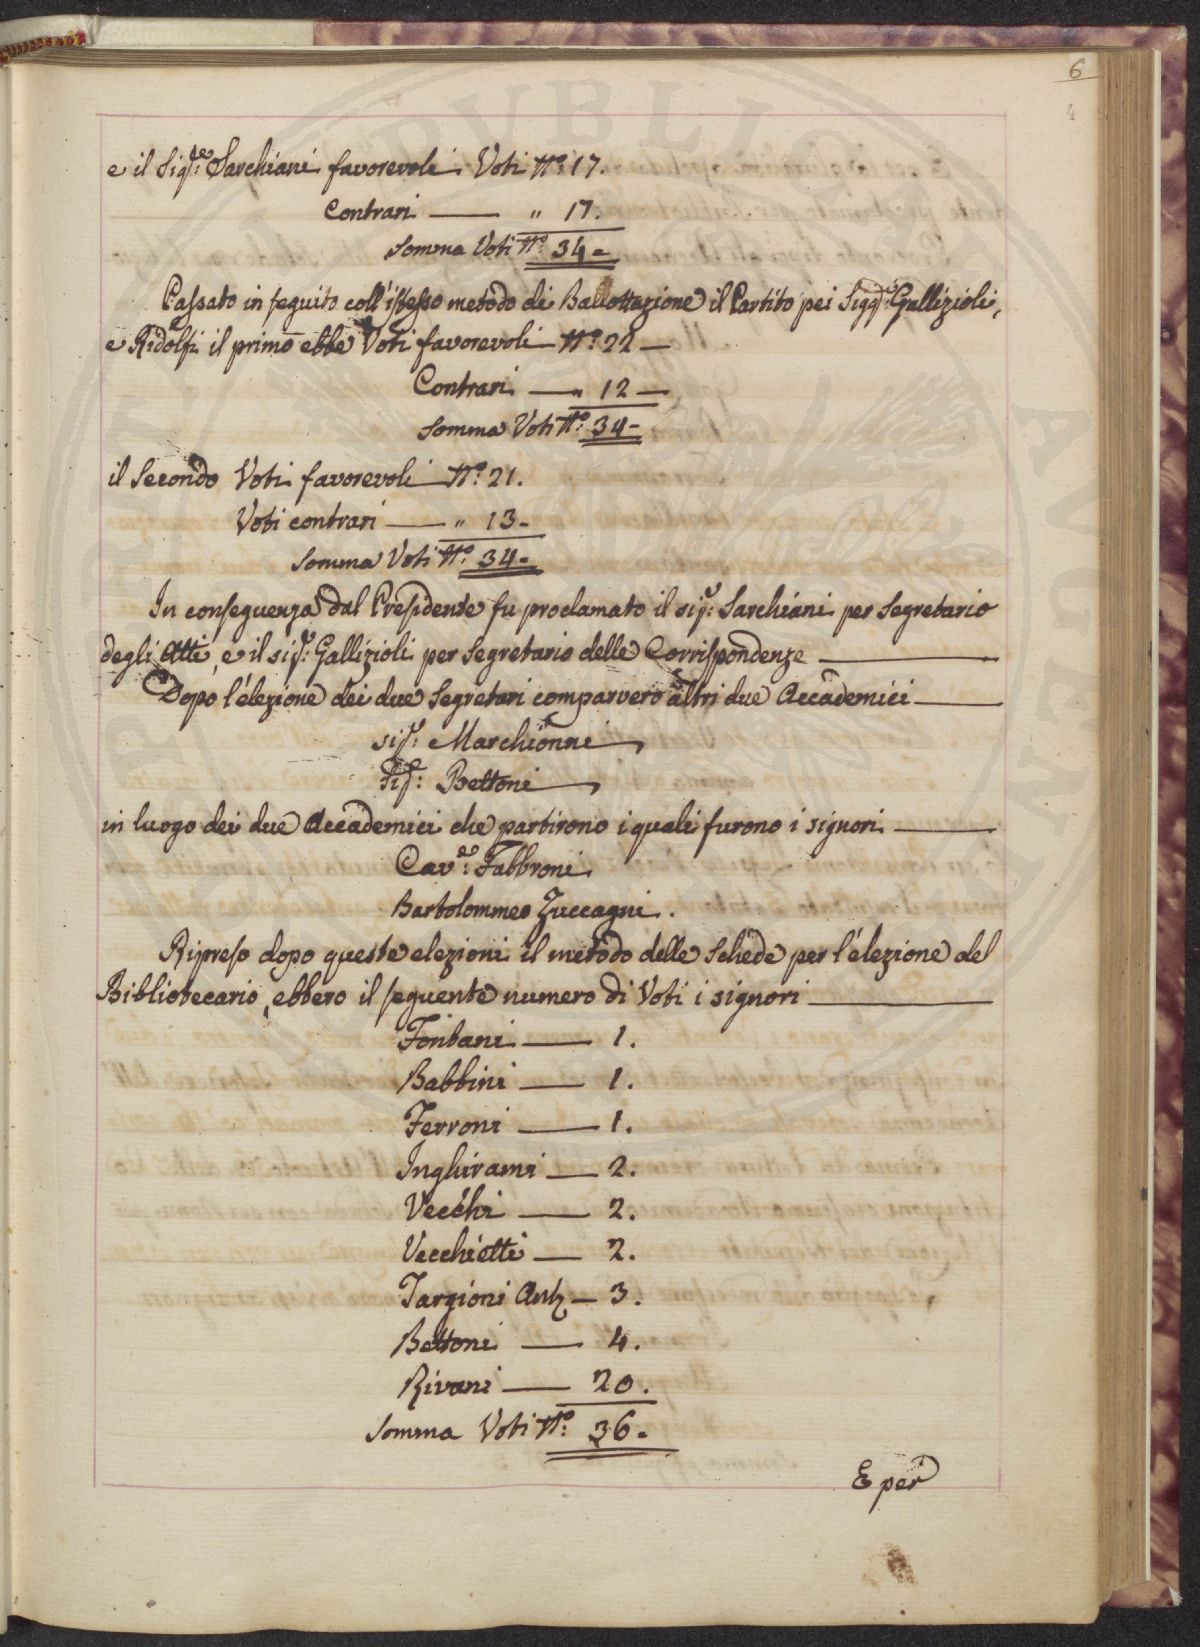 6
4
e il Sigre: Sarchiani favorevoli Voti No: 17.
Contrari — " 17.
Somma Voti No: 34-
Passato in seguito coll'istesso metodo di Ballottazione il Partito pei Sigg.ri Gallizioli,
e Ridolfi il primo ebbe Voti favorevoli No: 22 —
Contrari — " 12 —
Somma Voti No: 34-
il Secondo Voti favorevoli No: 21.
Voti contrari — " 13-
Somma Voti No: 34-
In conseguenza dal Presidente fu proclamato il sigr: Sarchiani per Segretario
degli Atti, e il sigr: Gallizioli per Segretario delle Corrispondenze —
Dopo l'elezione dei due Segretari comparvero altri due Accademici —
sigr: Marchionni
Sigr: Bettoni
in luogo dei due Accademici che partirono i quali furono i signori —
Cavre: Fabbroni
Bartolommeo Zuccagni.
Ripreso dopo queste elezioni il metodo delle Schede per l'elezione del
Bibliotecario, ebbero il seguente numero di Voti i signori —
Fontani — 1.
Babbini — 1.
Ferroni — 1.
Inghirami — 2.
Vecchi — 2.
Vecchietti — 2.
Targioni Ant — 3.
Bettoni — 4.
Rivani — 20.
Somma Voti No: 36-
E per